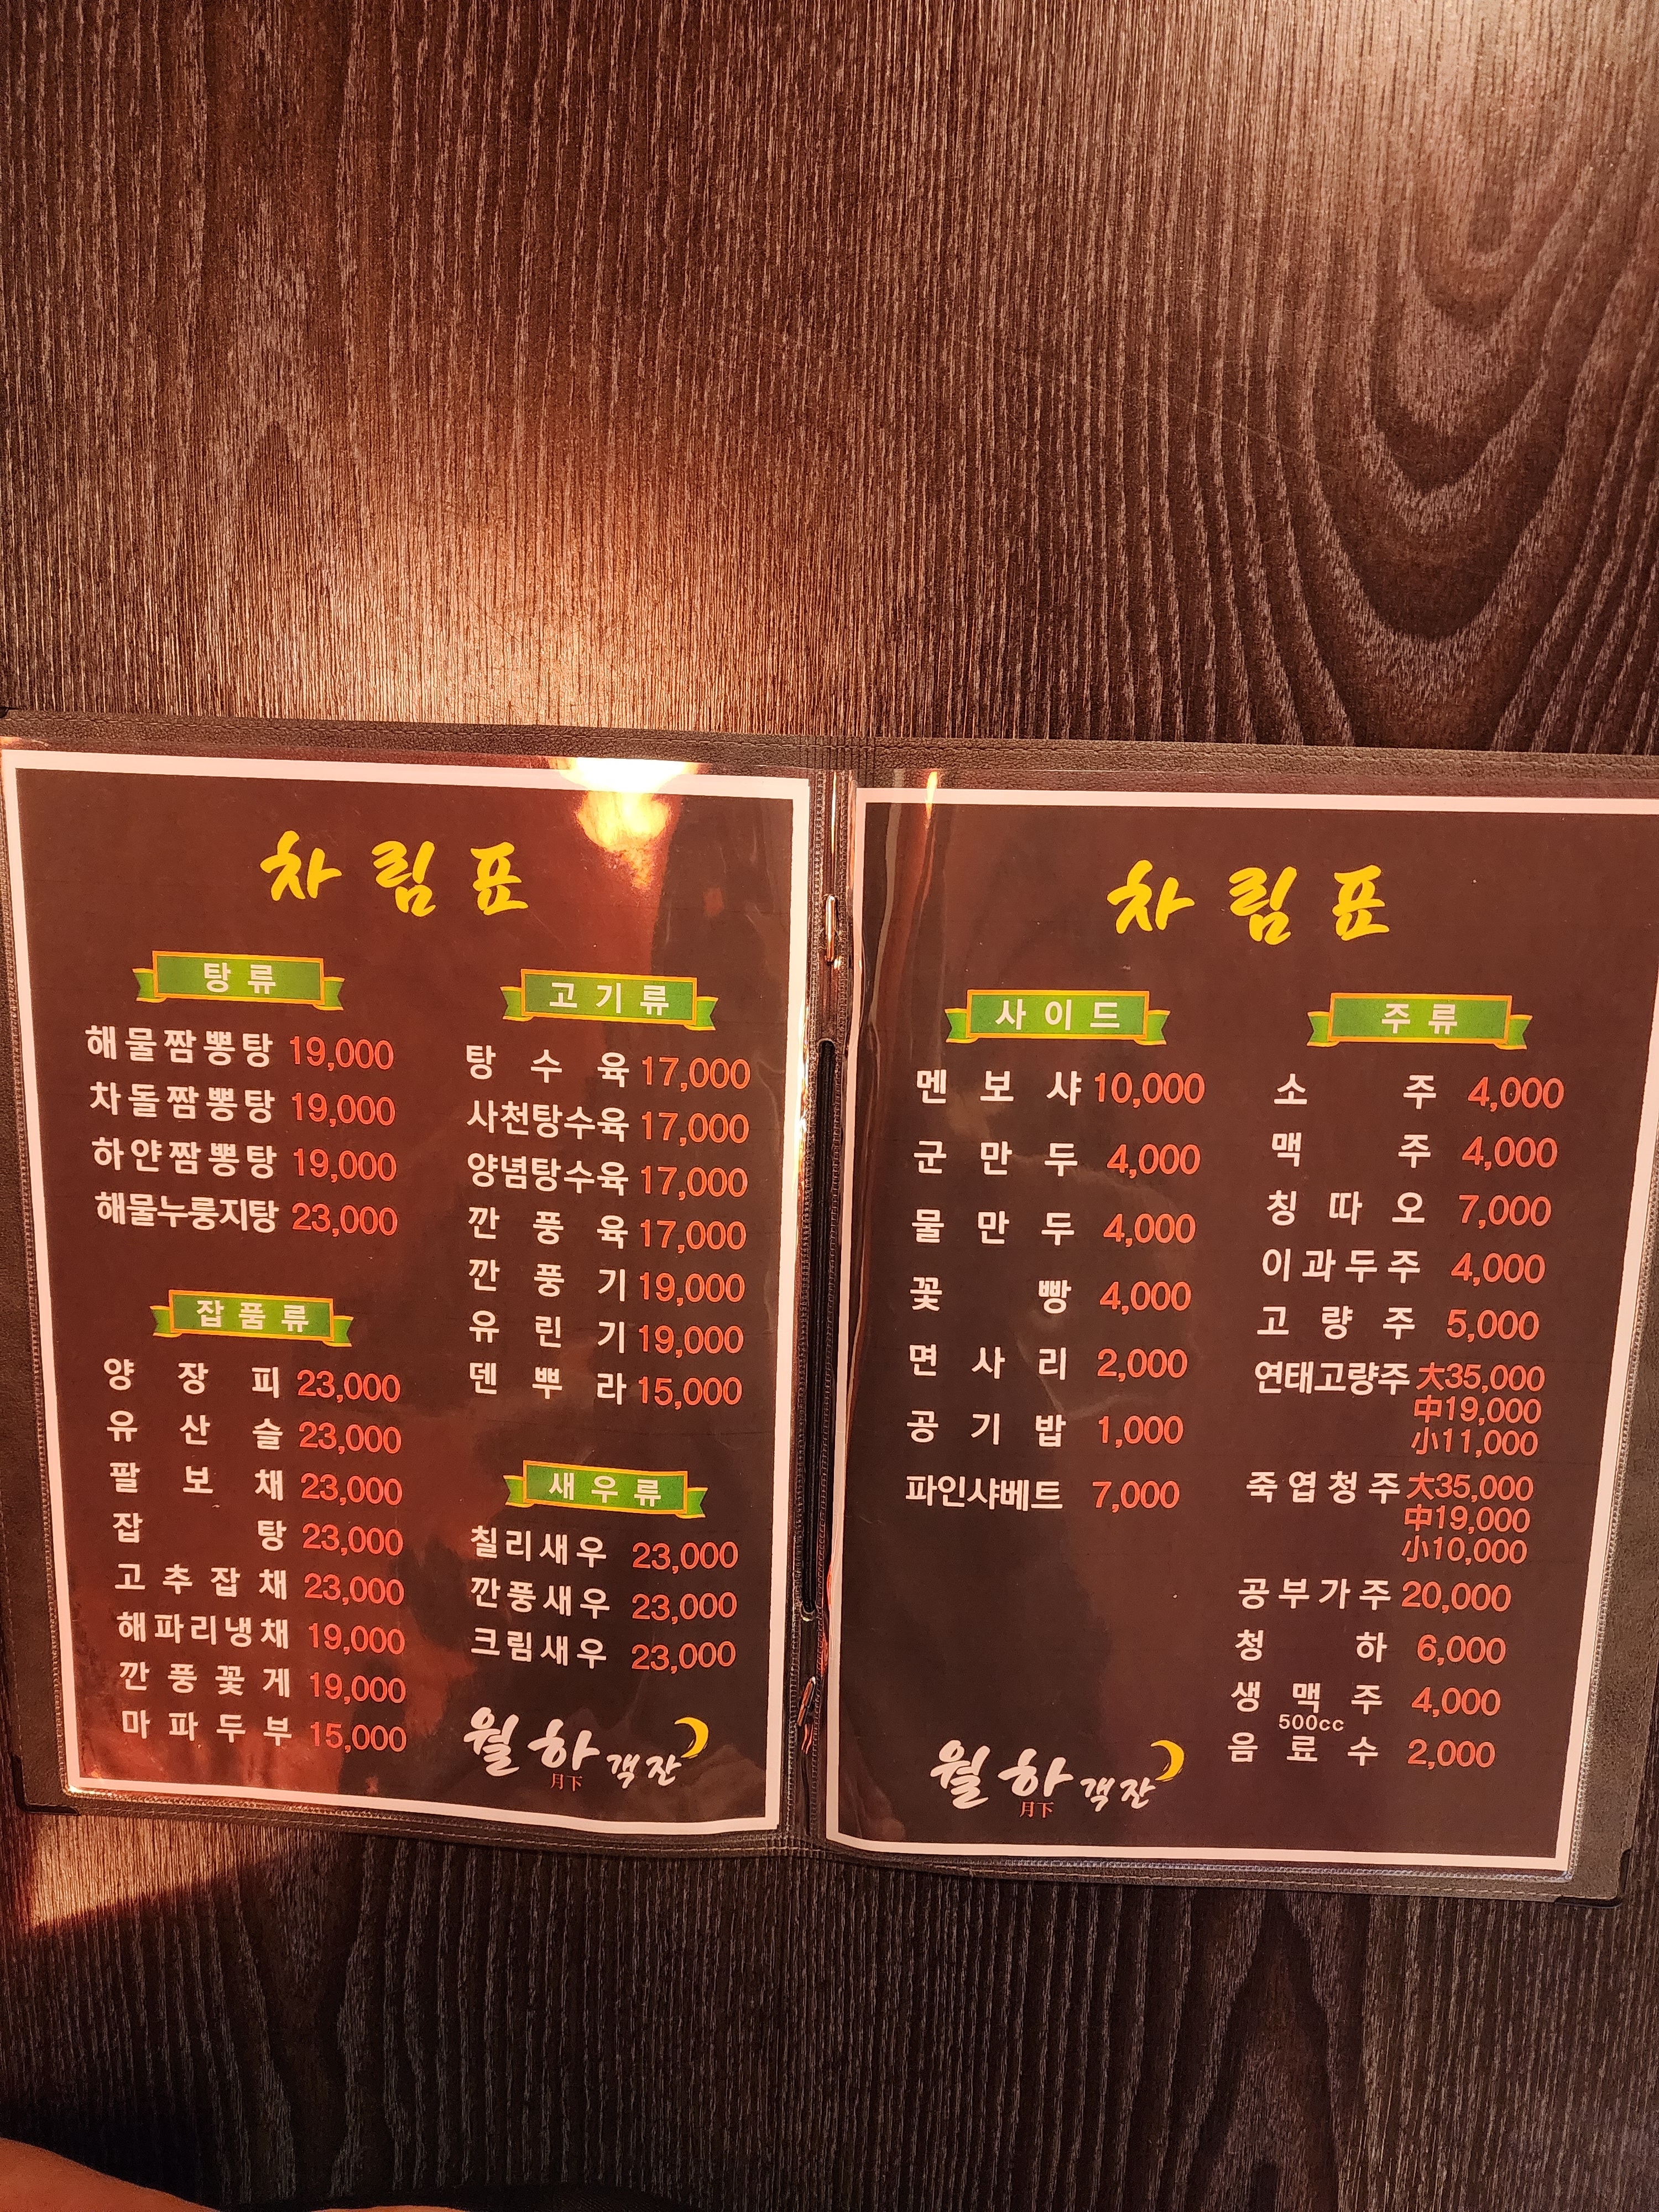 차림표
탕류
해물짬뽕탕 19,000
차돌짬뽕탕 19,000
하얀짬뽕탕 19,000
해물누룽지탕 23,000
잡품류
양장피 23,000
유산슬 23,000
팔보채 23,000
잡탕 23,000
고추잡채 23,000
해파리냉채 19,000
깐풍꽃게 19,000
마파두부 15,000
고기류
탕수육 17,000
사천탕수육 17,000
양념탕수육 17,000
깐풍육 17,000
깐풍기 19,000
유린기 19,000
덴뿌라 15,000
새우류
칠리새우 23,000
깐풍새우 23,000
크림새우 23,000
월하객잔
月下
차림표
사이드
멘보샤 10,000
군만두 4,000
물만두 4,000
꽃빵 4,000
면사리 2,000
공기밥 1,000
파인샤베트 7,000
주류
소주 4,000
맥주 4,000
칭따오 7,000
이과두주 4,000
고량주 5,000
연태고량주 大35,000
中19,000
小11,000
죽엽청주 大35,000
中19,000
小10,000
공부가주 20,000
청하 6,000
생맥주 4,000
500cc
음료수 2,000
월하객잔
月下